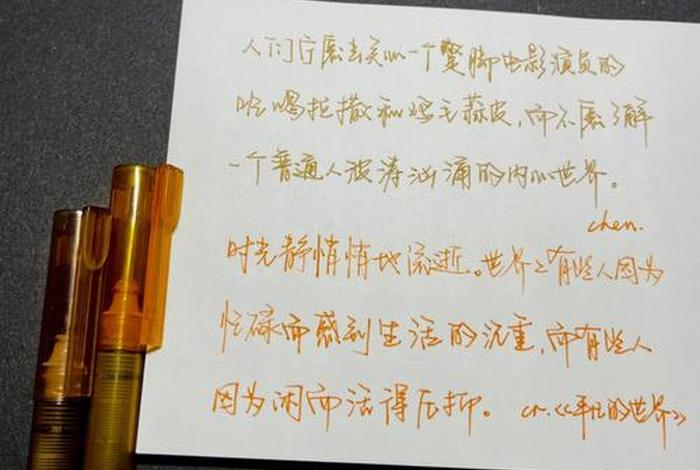 人们宁愿去关心一个蹩脚电影演员的
吃喝拉撒和鸡毛蒜皮,而不愿了解
一个普通人波涛汹涌的内心世界。
chen.
时光静悄悄地流逝。世界上有些人因为
忙碌而感到生活的沉重,而有些人
因为闲而活得压抑。 cr.《平凡的世界》